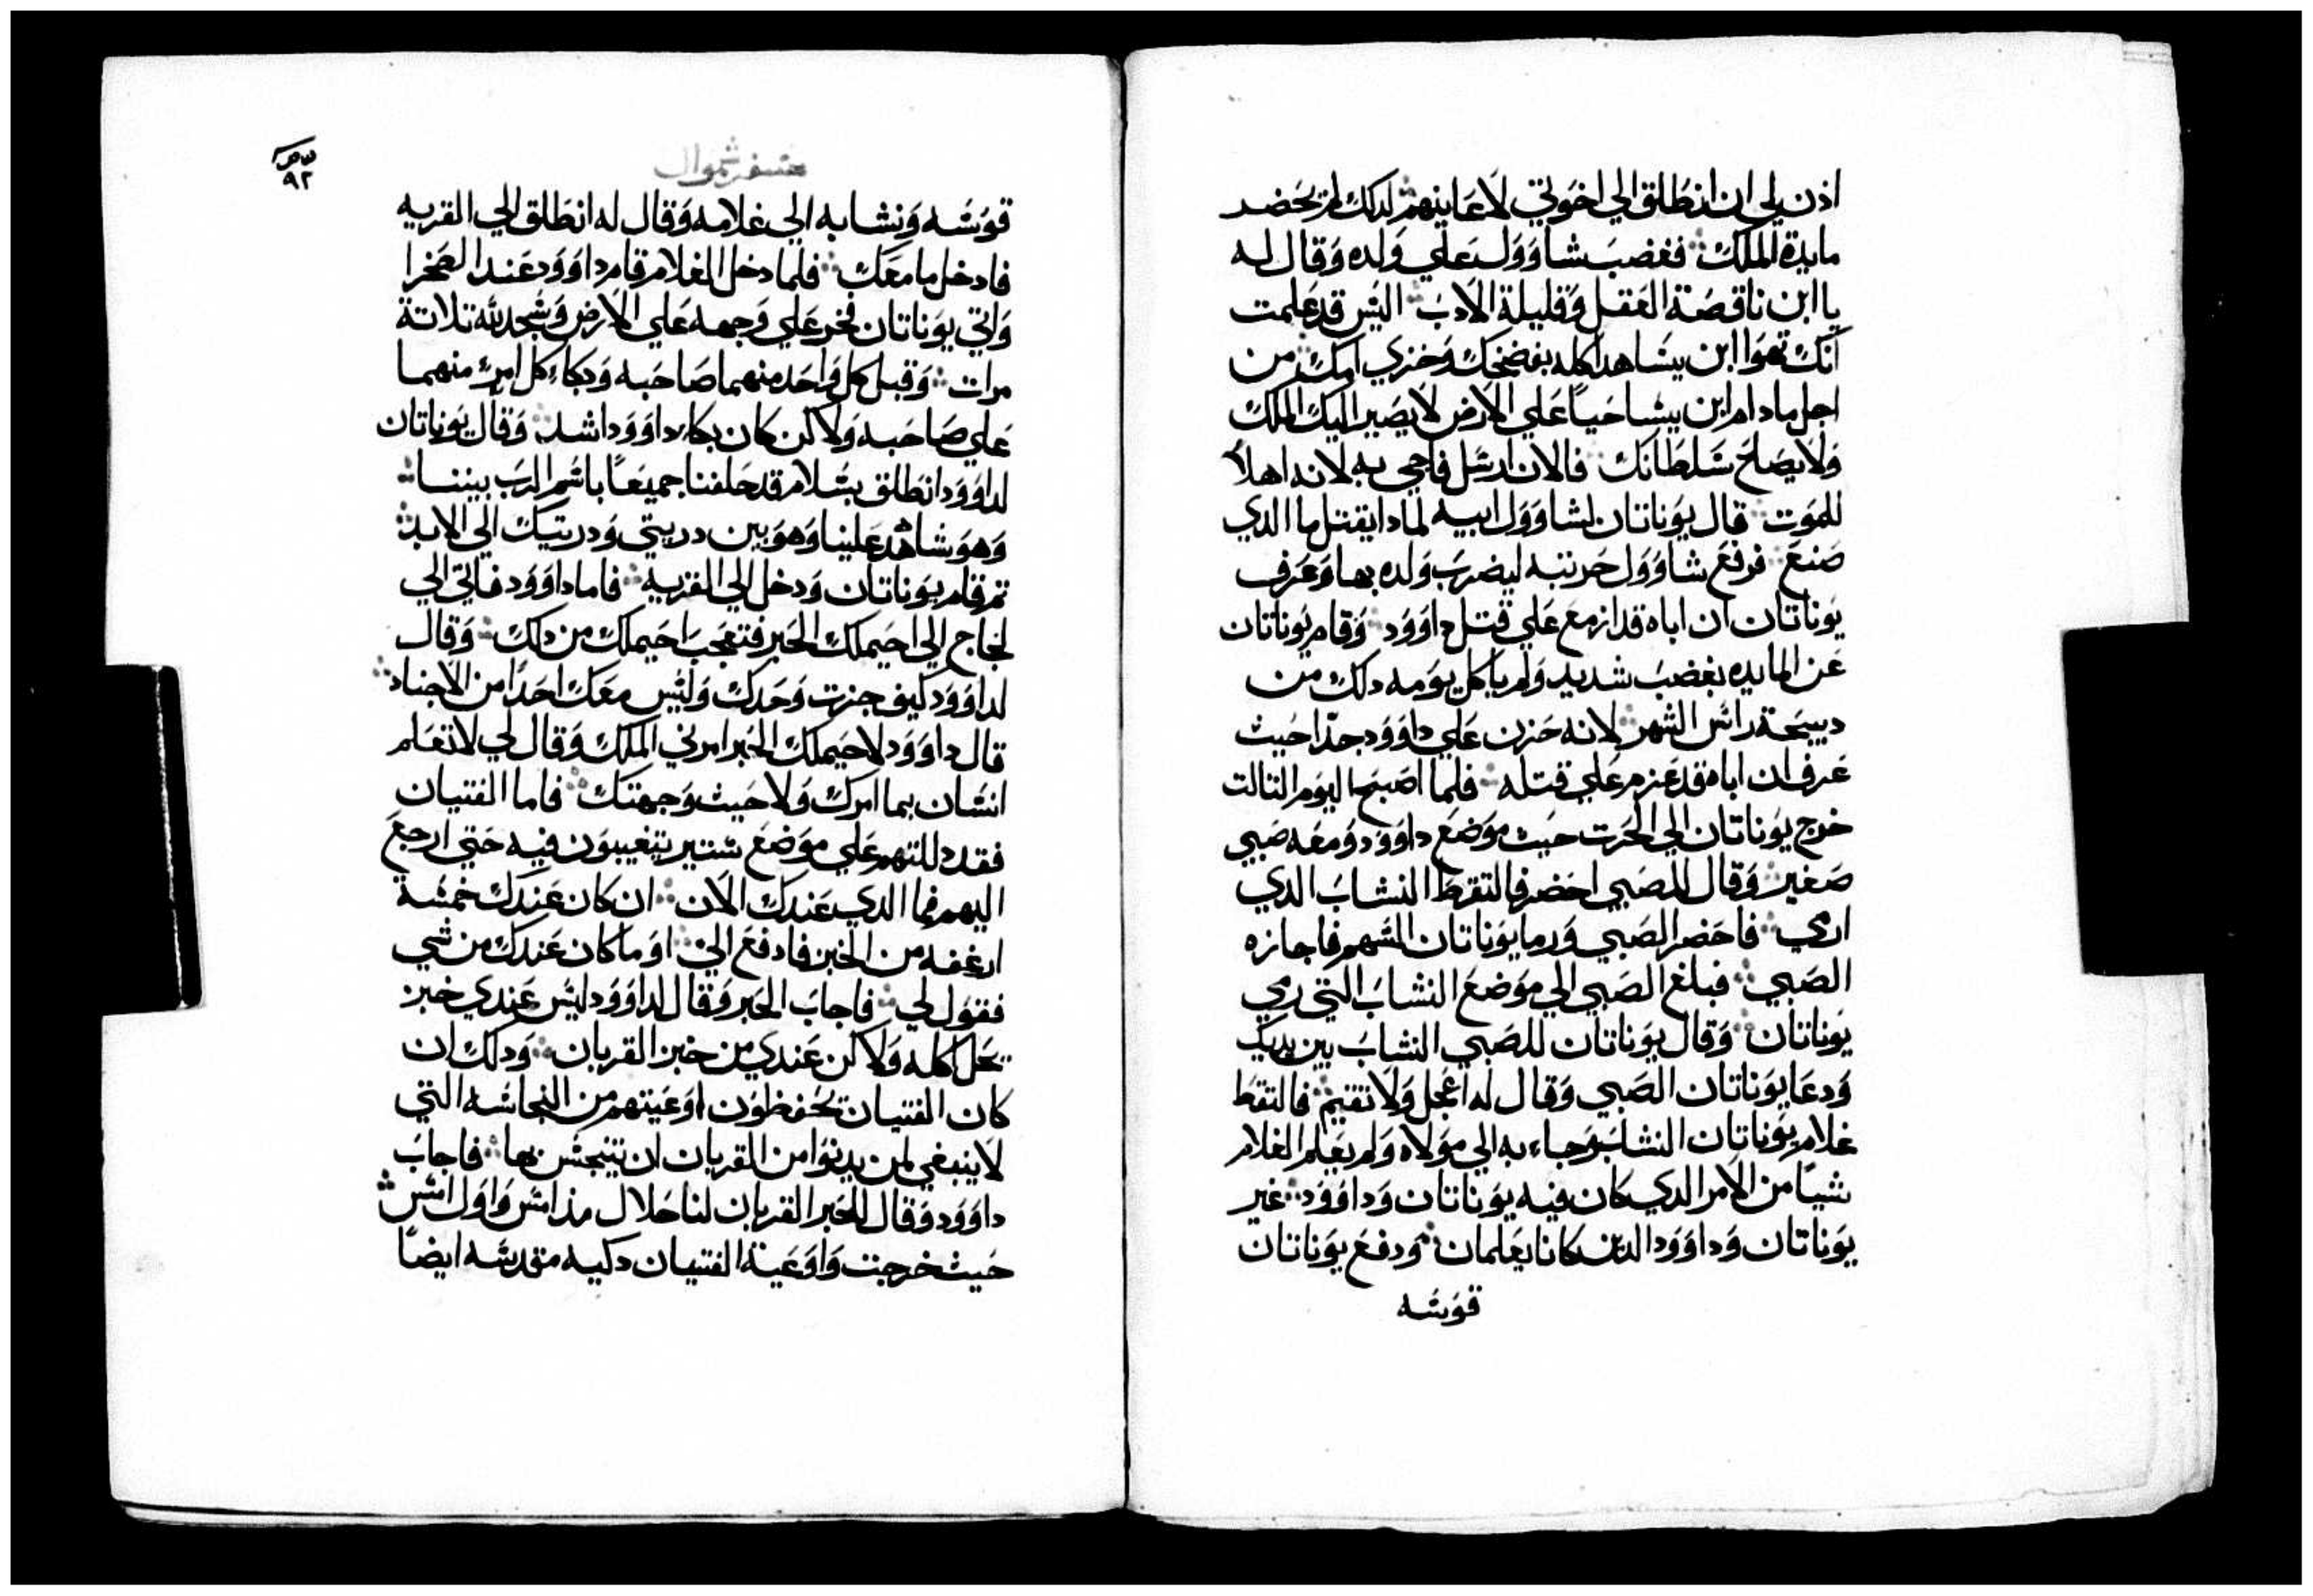 اذن لي ان انطلق الي اخوتي لاعاينهم لدلك لم يحضر
مايدة الملك فغضب شاوول علي ولده وقال له
يا ابن ناقصة العقل وقليلة الادب اليس قد علمت
انك تهوا ابن يسا هدا كله بفضحك وخزي امك من
اجل ما دام ابن يشا حيا علي الارض لا يصير اليك الملك
ولا يصلح سلطانك فالان ارسل فاجي به لانه اهلا
للموت قال يوناتان لشاوول ابيه لمادا يقتل ما الدي
صنع فرفع شاوول حربته ليضرب ولده بها وعرف
يوناتان ان اباه قد ازمع علي قتل داوود وقام يوناتان
عن المايده بغضب شديد ولم ياكل يومه دلك من
دبيحة راس الشهر لانه حزن علي داوود جدا حيث
عرف ان اباه قد عزم علي قتله فلما اصبح اليوم التالت
خرج يوناتان الي الحرت حيث موضع داوود ومعه صبي
صغير وقال للصبي احضر فالتقط النشاب الدي
ارمي فاحضر الصبي ورما يوناتان السهم فاجازه
الصبي فبلغ الصبي الي موضع النشاب التي رمي
يوناتان وقال يوناتان للصبي النشاب بين يديك
ودعا يوناتان الصبي وقال له اعجل ولا تقيم فالتقط
غلام يوناتان النشاب وجاء به الي مولاه ولم يعلم الغلام
شيا من الامر الدي كان فيه يوناتان وداوود غير
يوناتان وداوود الدين كانا يعلمان ودفع يوناتان
قوسه
سفر شموال
٩٢
قوسه ونشابه الي غلامه وقال له انطلق الي القريه
فادخل ما معك فلما دخل الغلام قام داوود عند الصخرا
واتي يوناتان فخر علي وجهه علي الارض وسجد لله تلاتة
مرات وقبل كل واحد منهما صاحبه وبكاء كل امرء منهما
علي صاحبه ولاكن كان بكاء داوود اشد وقال يوناتان
لداوود انطلق بسلام قد حلفنا جميعا باسم الرب بيننا
وهو شاهد علينا وهو بين دريتي ودريتك الي الابد
تم قام يوناتان ودخل الي القريه فاما داوود فاتي الي
لجاج الي احيملك الحبر فتعجب احيملك من دلك وقال
لداوود كيف جزت وحدك وليس معك احدا من الاجناد
قال داوود لاحيملك الحبر امرني الملك وقال لي لا تعلم
انسان بما امرك ولا حيث وجهتك فاما الفتيان
فقد دللتهم علي موضع ستير يتغيبون فيه حتي ارجع
اليهم فما الدي عندك الان ان كان عندك خمسة
ارغفه من الخبز فادفع الي او ما كان عندك من شي
فقول لي فاجاب الحبر وقال لداوود ليس عندي خبز
يحل اكله ولاكن عندي من خبز القربان ودلك ان
كان الفتيان يحفظون اوعيتهم من النجاسه التي
لا ينبغي لمن يدنوا من القربان ان يتنجس بها فاجاب
داوود وقال للحبر القربان لنا حلال مذ امس واول امس
حيث خرجت واوعية الفتيان دكيه مقدسه ايضا